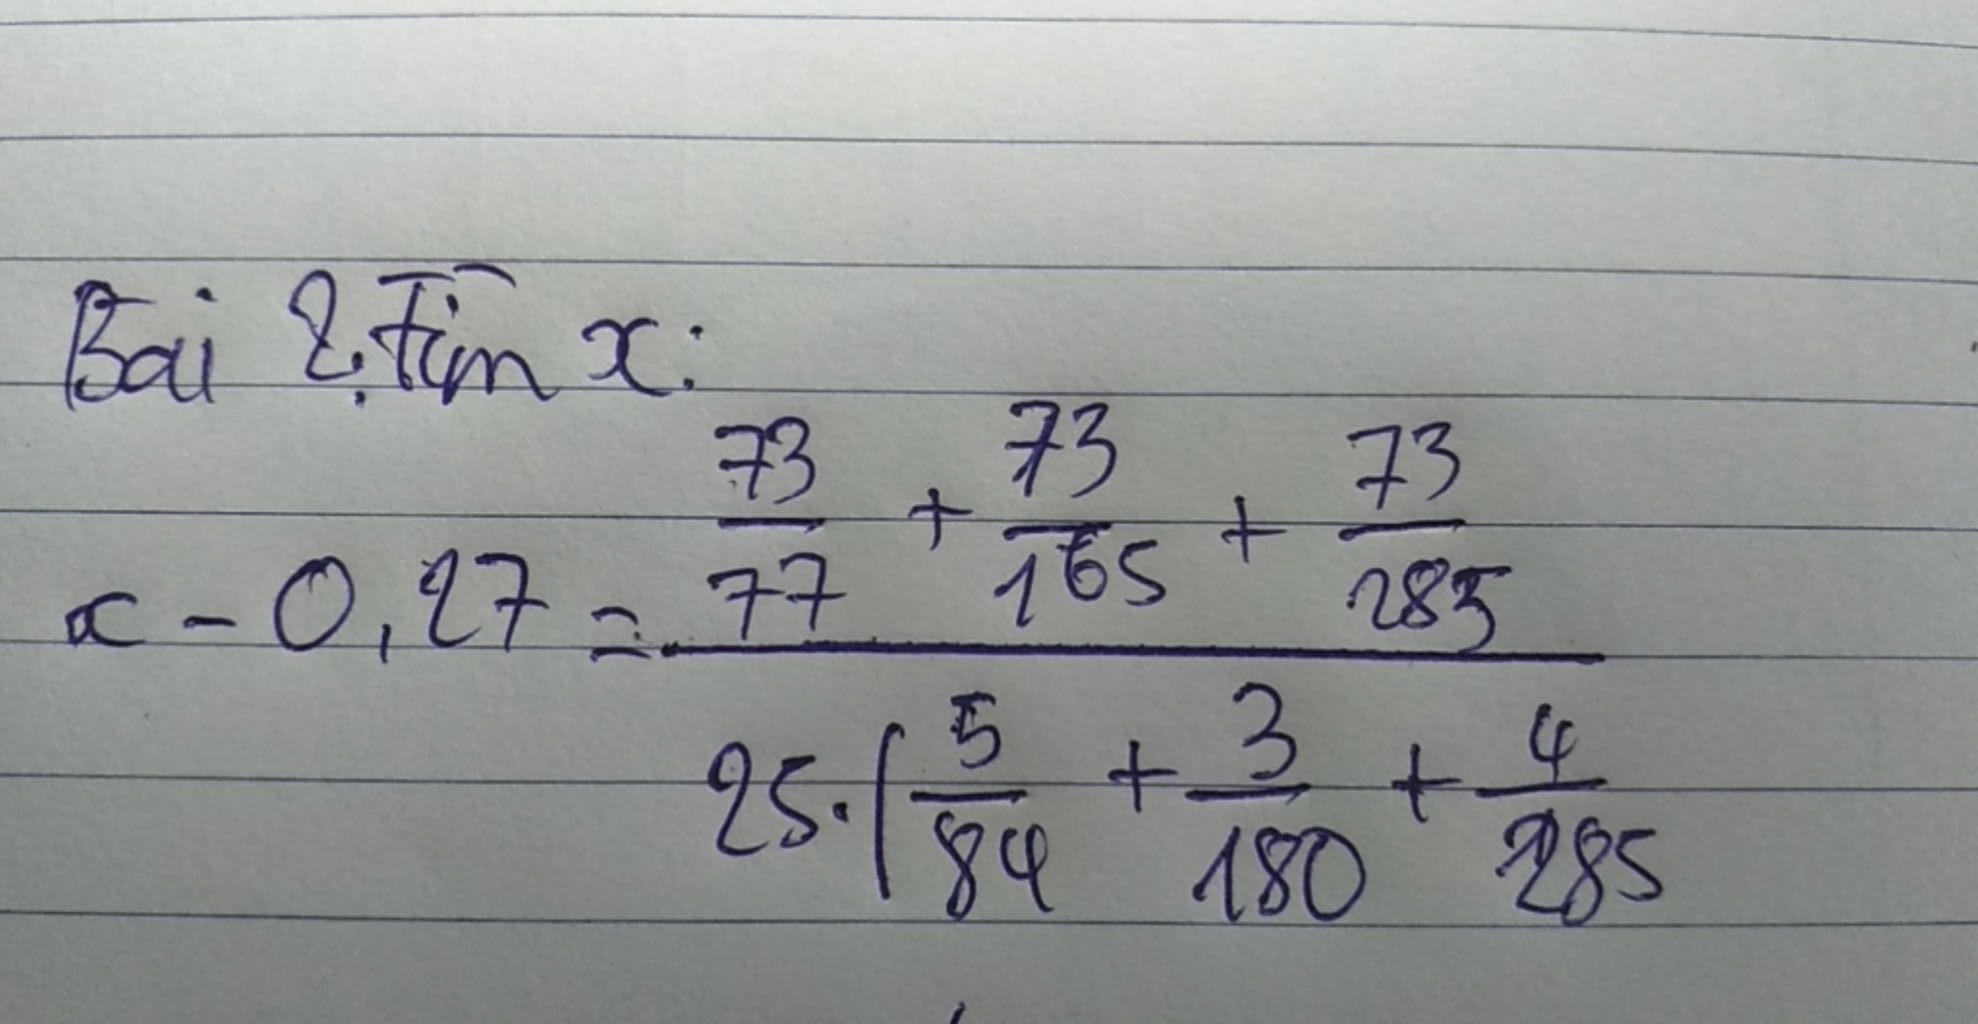 Bài 2. Tìm x:
x - 0,27 = (73/77 + 73/165 + 73/285) / (25.(5/84 + 3/180 + 4/285